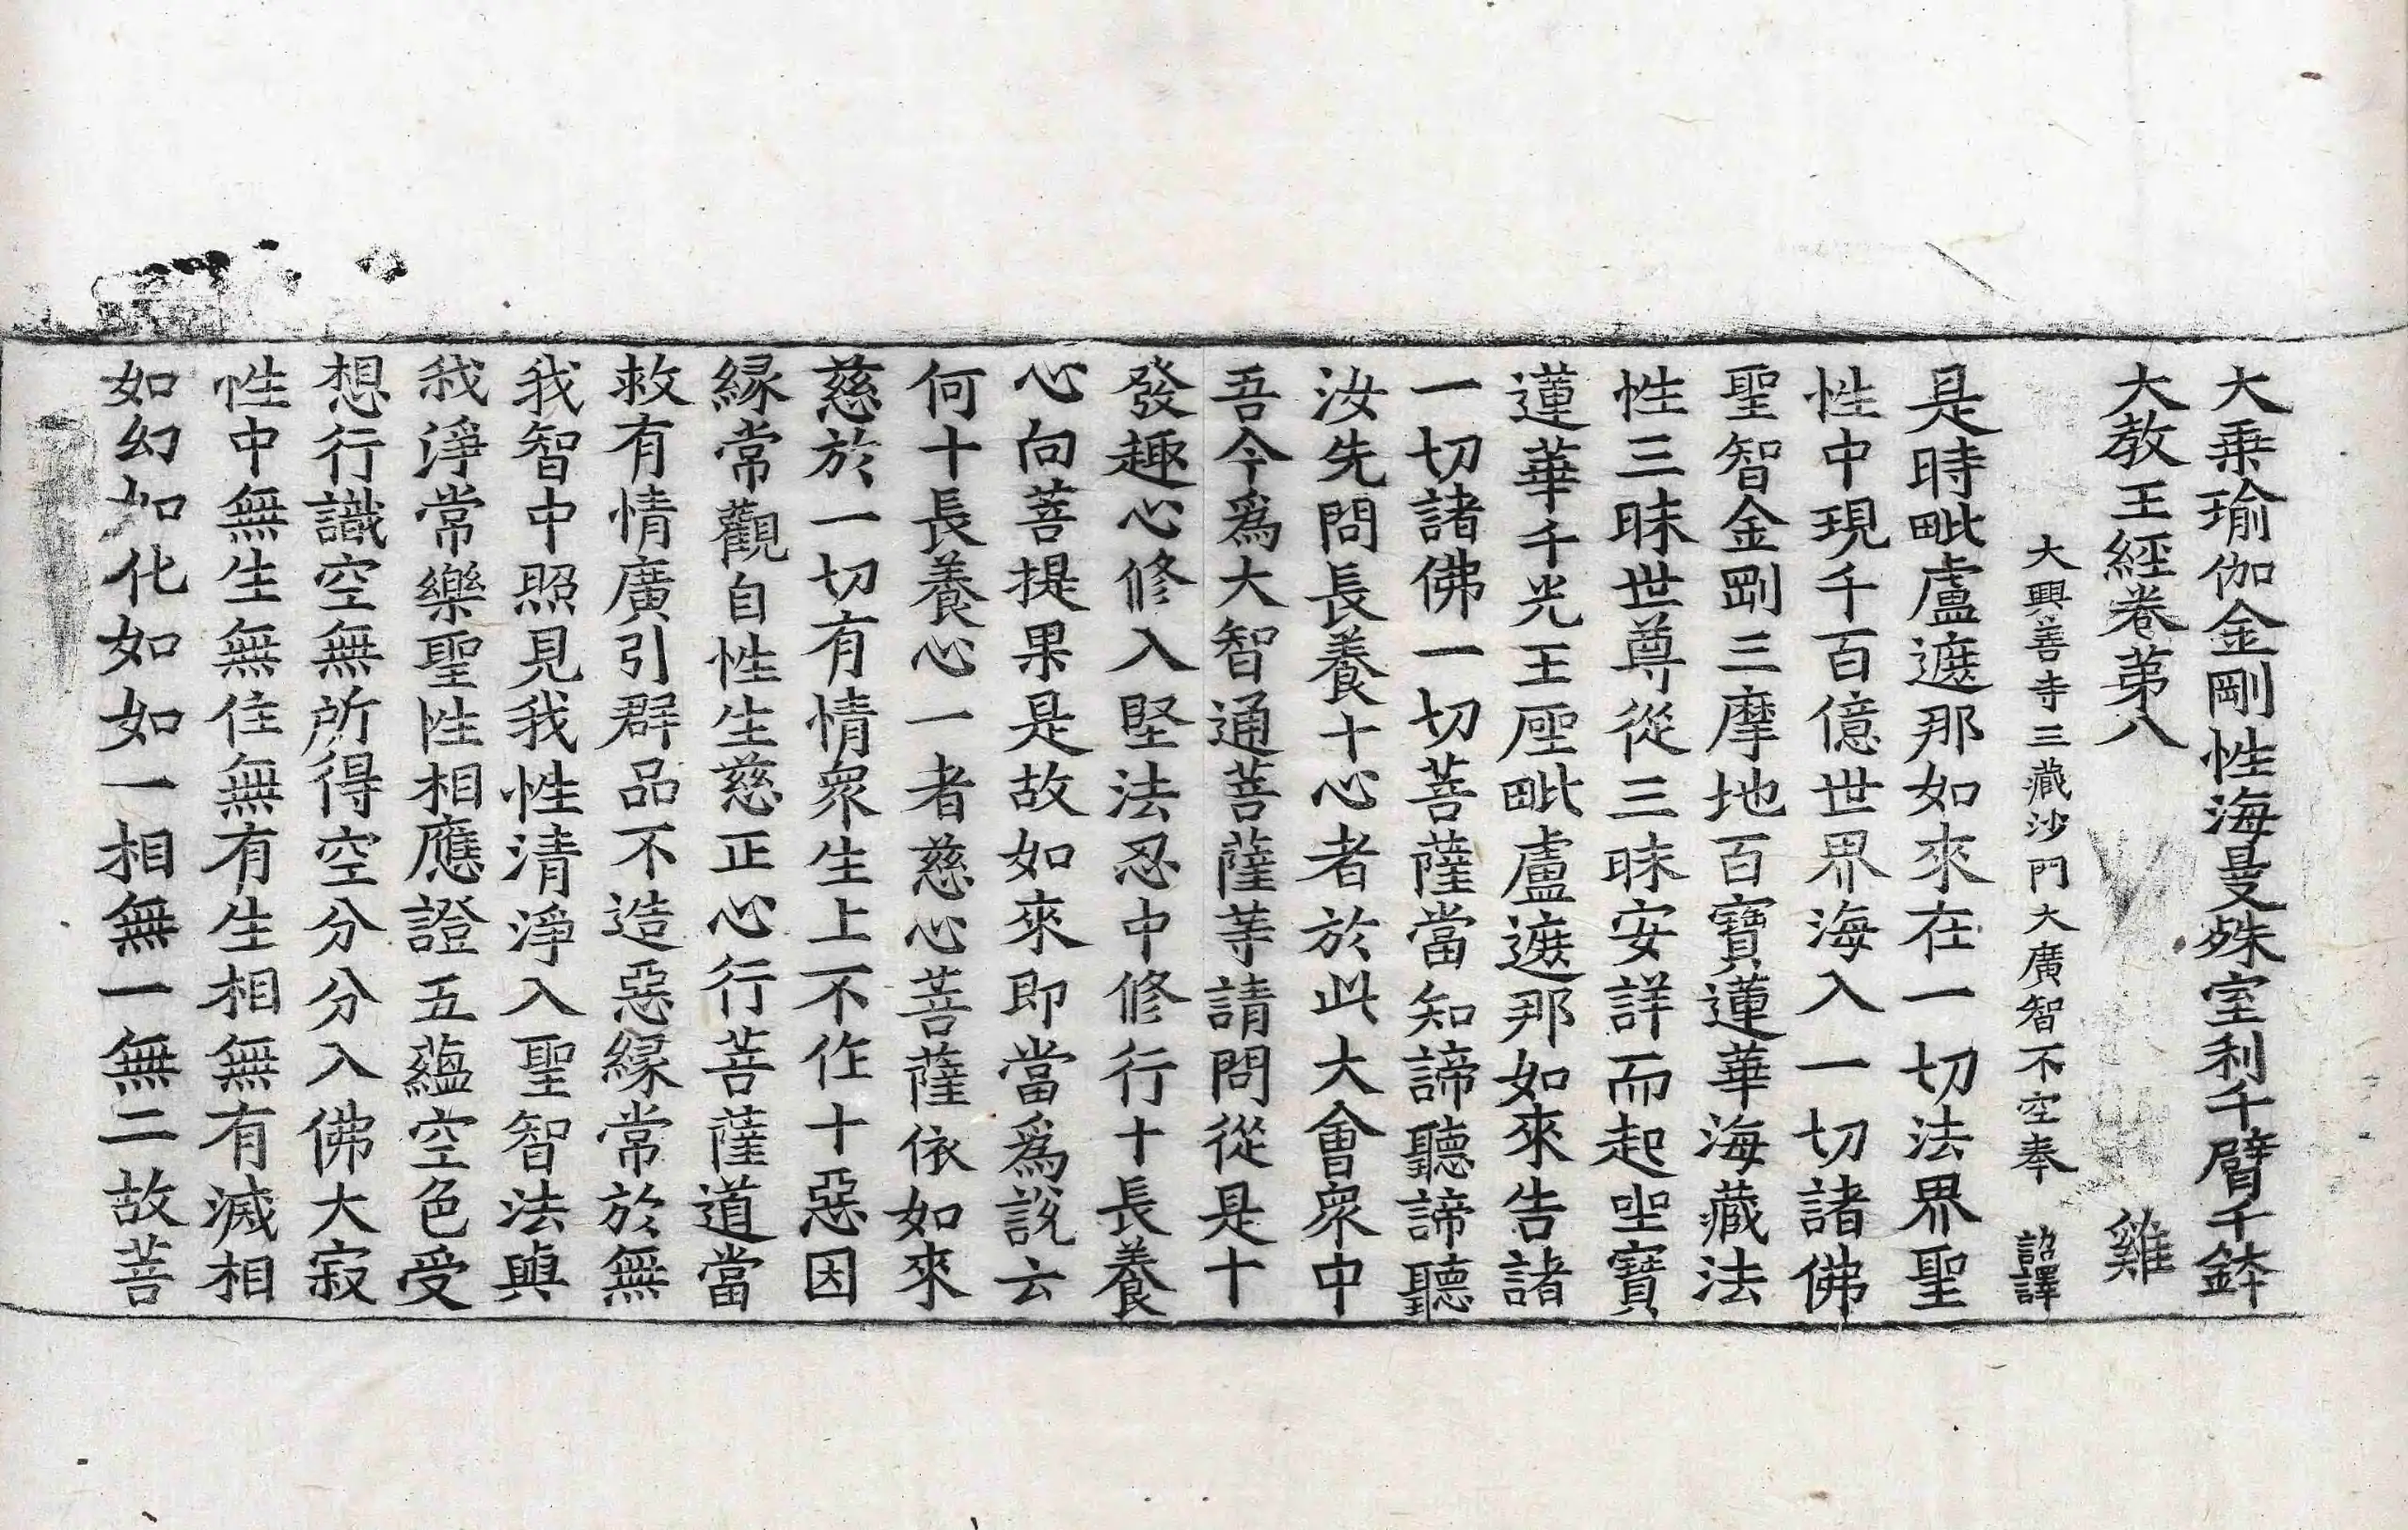 大乘瑜伽金剛性海曼殊室利千臂千鉢
大教王經卷第八 雞
大興善寺三藏沙門大廣智不空奉 詔譯
是時毗盧遮那如來在一切法界聖
性中現千百億世界海入一切諸佛
聖智金剛三摩地百寶蓮華海藏法
性三昧世尊從三昧安詳而起坐寶
蓮華千光王座毗盧遮那如來告諸
一切諸佛一切菩薩當知諦聽諦聽
汝先問長養十心者於此大會衆中
吾今爲大智通菩薩等請問從是十
發趣心修入堅法忍中修行十長養
心向菩提果是故如來即當爲說云
何十長養心一者慈心菩薩依如來
慈於一切有情衆生上不作十惡因
緣常觀自性生慈正心行菩薩道當
救有情廣引群品不造惡緣常於無
我智中照見我性清淨入聖智法與
我淨常樂聖性相應證五蘊空色受
想行識空無所得空分分入佛大寂
性中無生無住無有生相無有滅相
如幻如化如如一相無一無二故菩